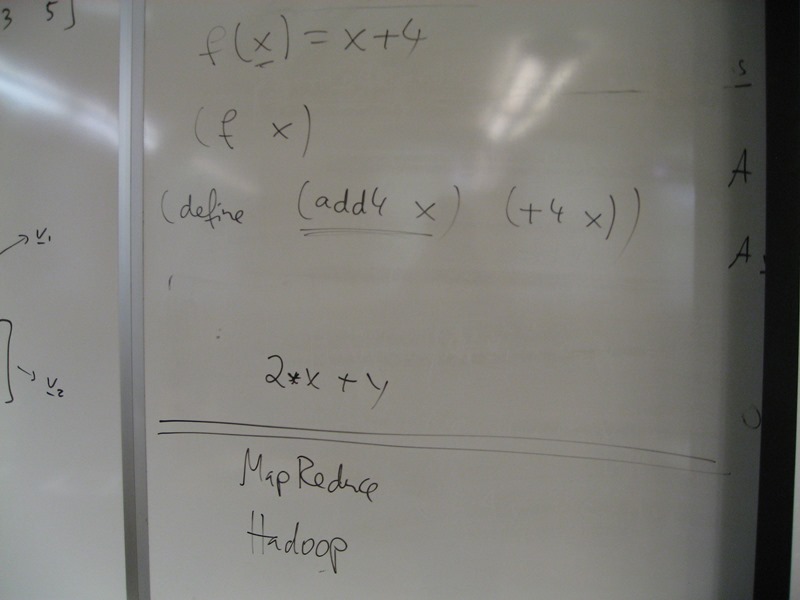 3 5]
v1
v2
f(x) = x+4
(f x)
(define (add4 x) (+4 x))
2*x + y
MapReduce
Hadoop
s
A
A